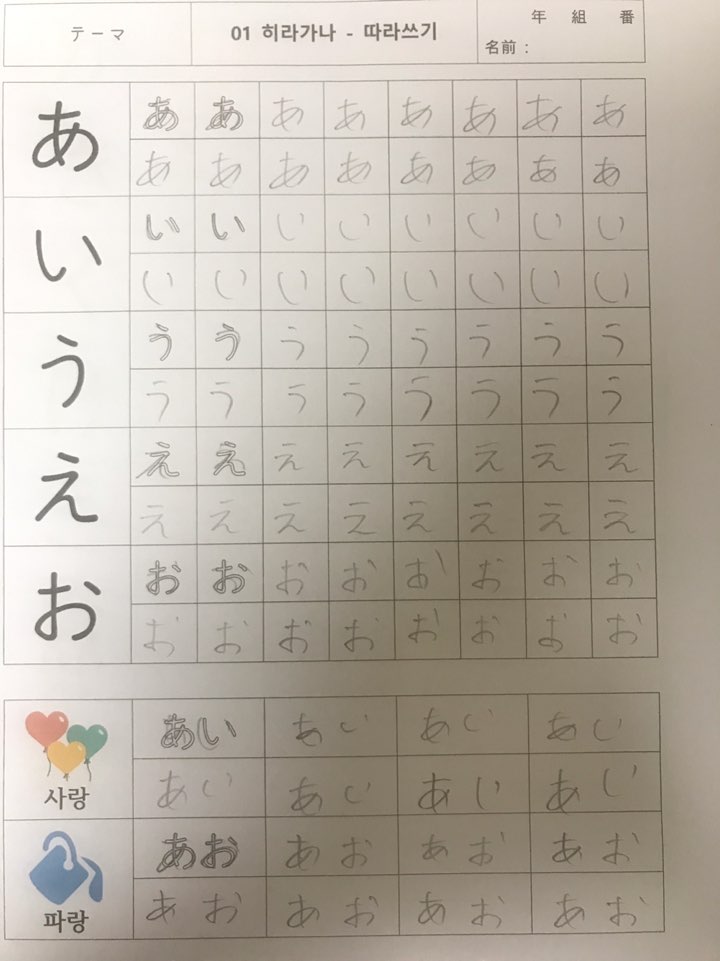 テーマ 01 히라가나 - 따라쓰기 年 組 番
名前 :
あ あ あ あ あ あ あ あ あ
あ あ あ あ あ あ あ あ
い い い い い い い い い
い い い い い い い い
う う う う う う う う う
う う う う う う う う
え え え え え え え え え
え え え え え え え え
お お お お お お お お お
お お お お お お お お
あい あい あい あい
사랑 あい あい あい あい
あお あお あお あお
파랑 あお あお あお あお